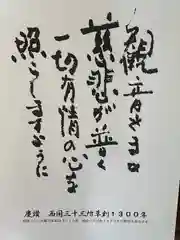 觀音さまの
慈悲が普く
一切有情の心を
照らしますように
慶讃 西国三十三所草創1300年